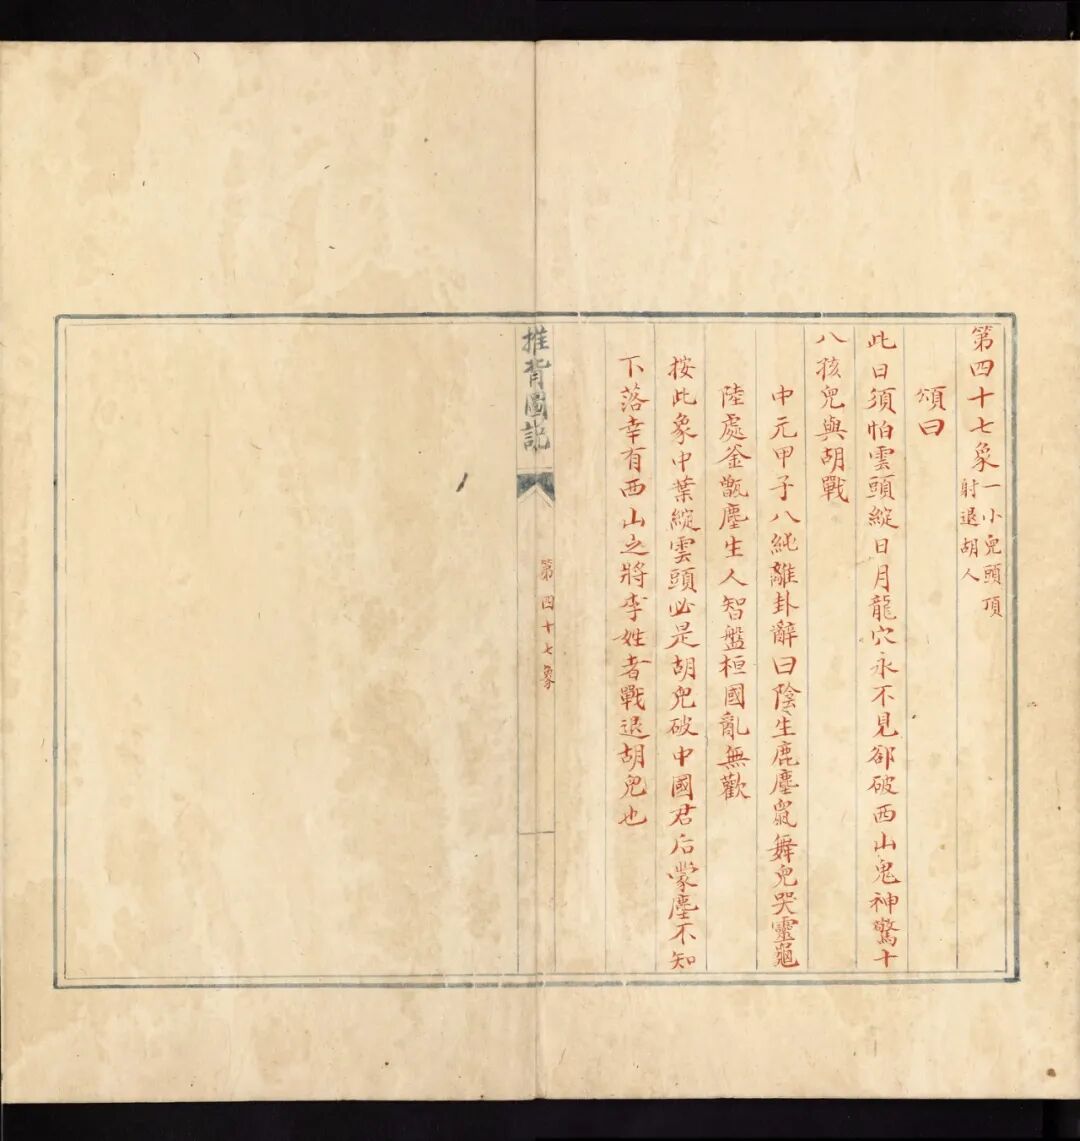 第四十七象 一小兒頭頂
射退胡人
頌曰
此日須怕雲頭綻日月龍穴永不見郤破西山鬼神驚十
八孩兒與胡戰
中元甲子八純離卦辭曰陰生鹿塵鼠舞兒哭靈龜
陸處釜甑塵生人智盤桓國亂無歡
按此象中葉綻雲頭必是胡兒破中國君后蒙塵不知
下落幸有西山之將李姓者戰退胡兒也
推背圖説
第四十七象